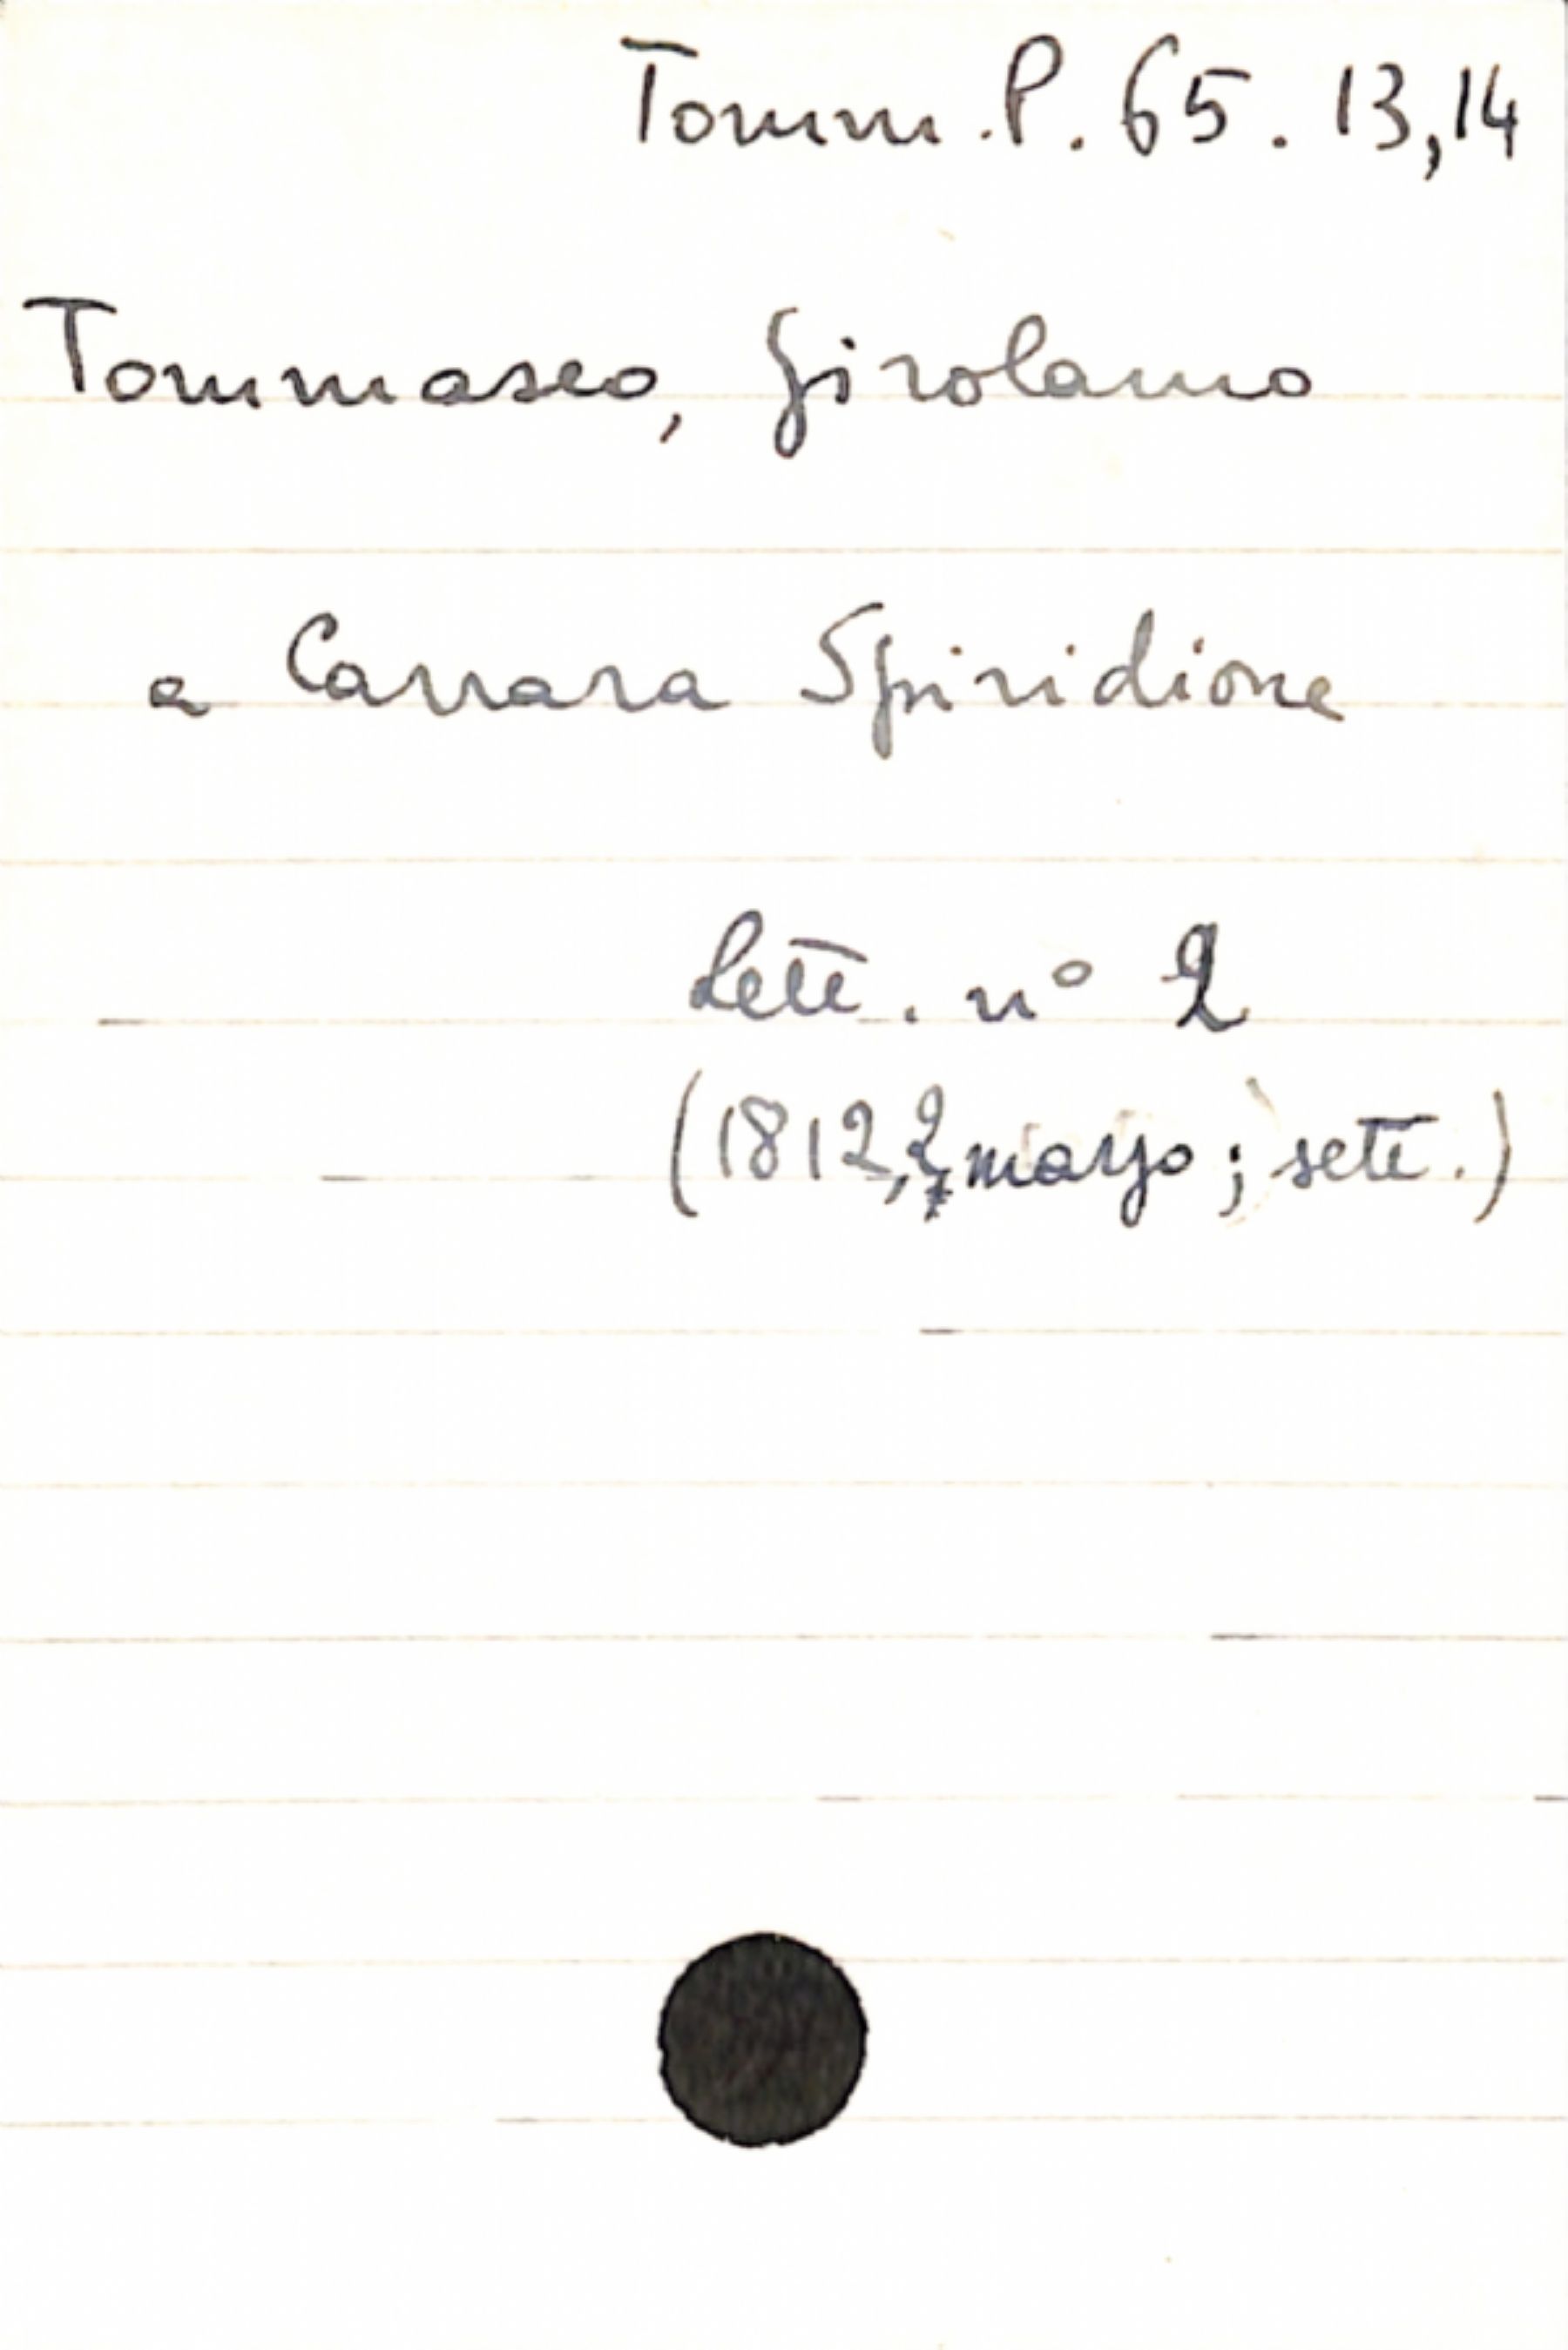 Tomm. P. 65. 13,14
Tommaseo, Girolamo
a Carrara Spiridione
Lett. n° 2
(1812, 2 marzo; sett.)